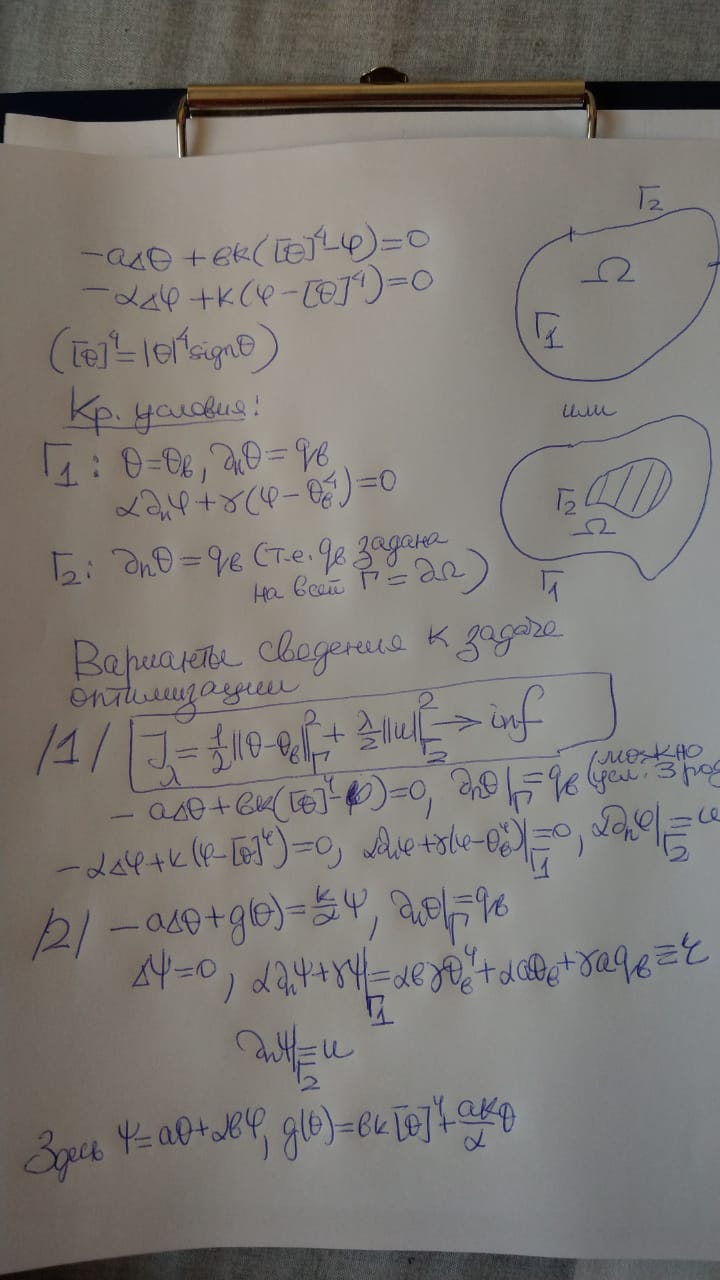 -aΔθ + bk([θ]⁴-φ)=0
-αΔφ + k(φ-[θ]⁴)=0
([θ]⁴=|θ|⁴signθ)
Кр. условия:
Γ₁: θ=θb, ∂nθ=qb
α∂nφ+γ(φ-θb⁴)=0
Γ₂: ∂nθ=qb (т.е. qb задана
на всей Γ=∂Ω)
Γ₂
Ω
Γ₁
или
Γ₂
Ω
Γ₁
Варианты сведения к задаче
оптимизации
/1/ Jλ=½||θ-θb||²Γ + λ/2||u||²Γ₂ → inf
-aΔθ+bk([θ]⁴-φ)=0, ∂nθ|Γ=qb (можно
усл. 3 род
-αΔφ+k(φ-[θ]⁴)=0, α∂nφ+γ(φ-θb⁴)|Γ₁=0, α∂nφ|Γ₂=u
/2/ -aΔθ+g(θ)=k/α ψ, ∂nθ|Γ=qb
Δψ=0, α∂nψ+γψ|Γ₁=αbγθb⁴+αaθb+γaqb≡r
∂nψ|Γ₂=u
Здесь ψ=aθ+αbφ, g(θ)=bk[θ]⁴+ak/α θ